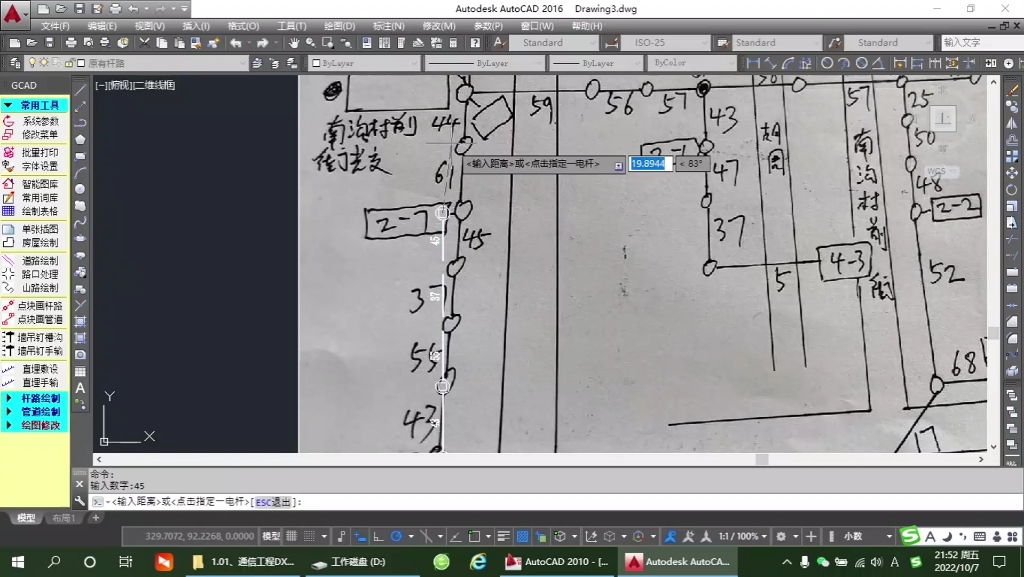 Autodesk AutoCAD 2016 Drawing3.dwg
文件(F) 编辑(E) 视图(V) 插入(I) 格式(O) 工具(T) 绘图(D) 标注(N) 修改(M) 参数(P) 窗口(W) 帮助(H)
Standard ISO-25 Standard Standard 输入文字
原有杆路 ByLayer ByLayer ByLayer ByColor
GCAD
常用工具
系统参数
修改菜单
批量打印
字体设置
智能图库
常用词库
绘制表格
单张插图
房屋绘制
道路绘制
路口处理
山路绘制
点块画杆路
点块画管道
墙吊钉槽沟
墙吊钉手输
直埋敷设
直埋手输
杆路绘制
管道绘制
绘图修改
[-][俯视][二维线框]
59 56 57 57 25
44 43 50
南沟村前
街门光交
胡同
南沟村前街
61 47 48
<输入距离>或<点击指定一电杆> 19.8944 < 83°
上
WCS
2-7 2-2
45 45 37
4-3
37 37 5 52
55
68
43 17
Y
X
命令:
输入数字:45
<输入距离>或<点击指定一电杆>[ESC退出]:
模型 布局1 +
329.7072, 92.2268, 0.0000 模型 1:1 / 100% 小数
1.01、通信工程DX... 工作磁盘 (D:) AutoCAD 2010 - [... Autodesk AutoCA...
21:52 周五
2022/10/7